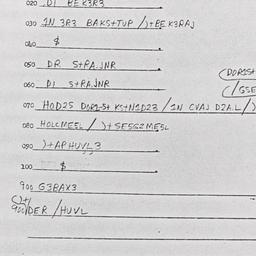 020 DI BEK3R3
030 1N 3R3 BAKS+TUP /)+BEK3RAJ
040 $
050 DR S+RA.JNR
(DOR1S+
060 DI S+RA.JNR
(/GSE
070 HOD25 DOR1-S+ KS+N1D23 /1N CVAJ D2A.L/)
080 HOLCME5L / )+SE5G2ME5L
090 )+APHUVL3
100 $
900 G3RAX3
900/DER /HUVL